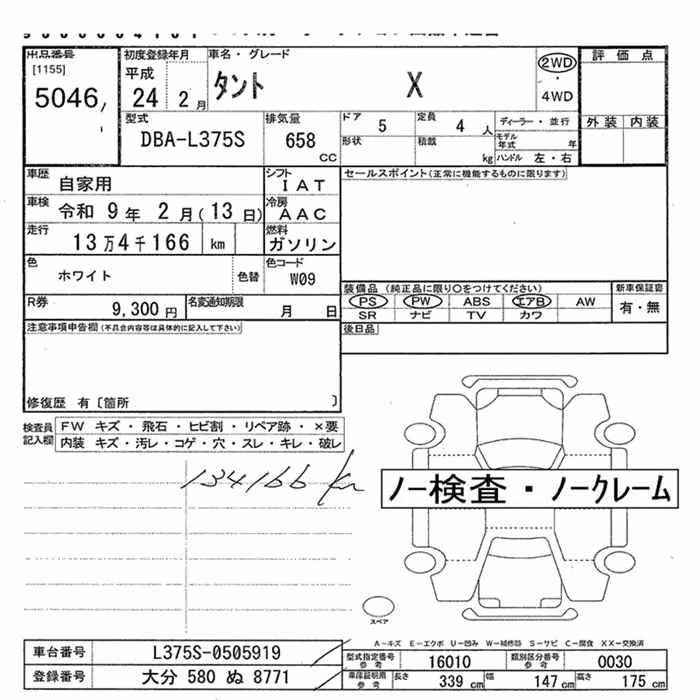 出品番号 初度登録年月 車名・グレード 評価点
[1155] 平成 タント X 2WD
5046 24 2月 ・ 4WD
型式 排気量 ドア 定員 ディーラー・並行 外装 内装
DBA-L375S 658 CC 5 4 人
形状 積載 kg モデル年式 年
ハンドル 左・右
車歴 自家用 シフト IAT セールスポイント(正常に機能するものに限ります)
車検 令和 9年 2月(13日) 冷房 AAC
走行 13万4千166 km 燃料 ガソリン
色 ホワイト 色替 色コード W09
装備品 (純正品に限り○をつけてください) 新車保証書
R券 9,300円 名変通知期限 月 日 PS PW ABS エアB AW 有・無
SR ナビ TV カワ
注意事項申告欄(不具合内容等は具体的に記入して下さい) 後日品
修復歴 有〔箇所 〕
検査員記入欄 FW キズ・飛石・ヒビ割・リペア跡・×要
内装 キズ・汚レ・コゲ・穴・スレ・キレ・破レ
134166 km
ノー検査・ノークレーム
スペア
A-キズ E-エクボ U-凹み W-補修跡 S-サビ C-腐食 XX-交換済
車台番号 L375S-0505919 型式指定番号 参考 16010 類別区分番号 参考 0030
登録番号 大分 580 ぬ 8771 車庫証明用 参考 長さ 339 cm 幅 147 cm 高さ 175 cm